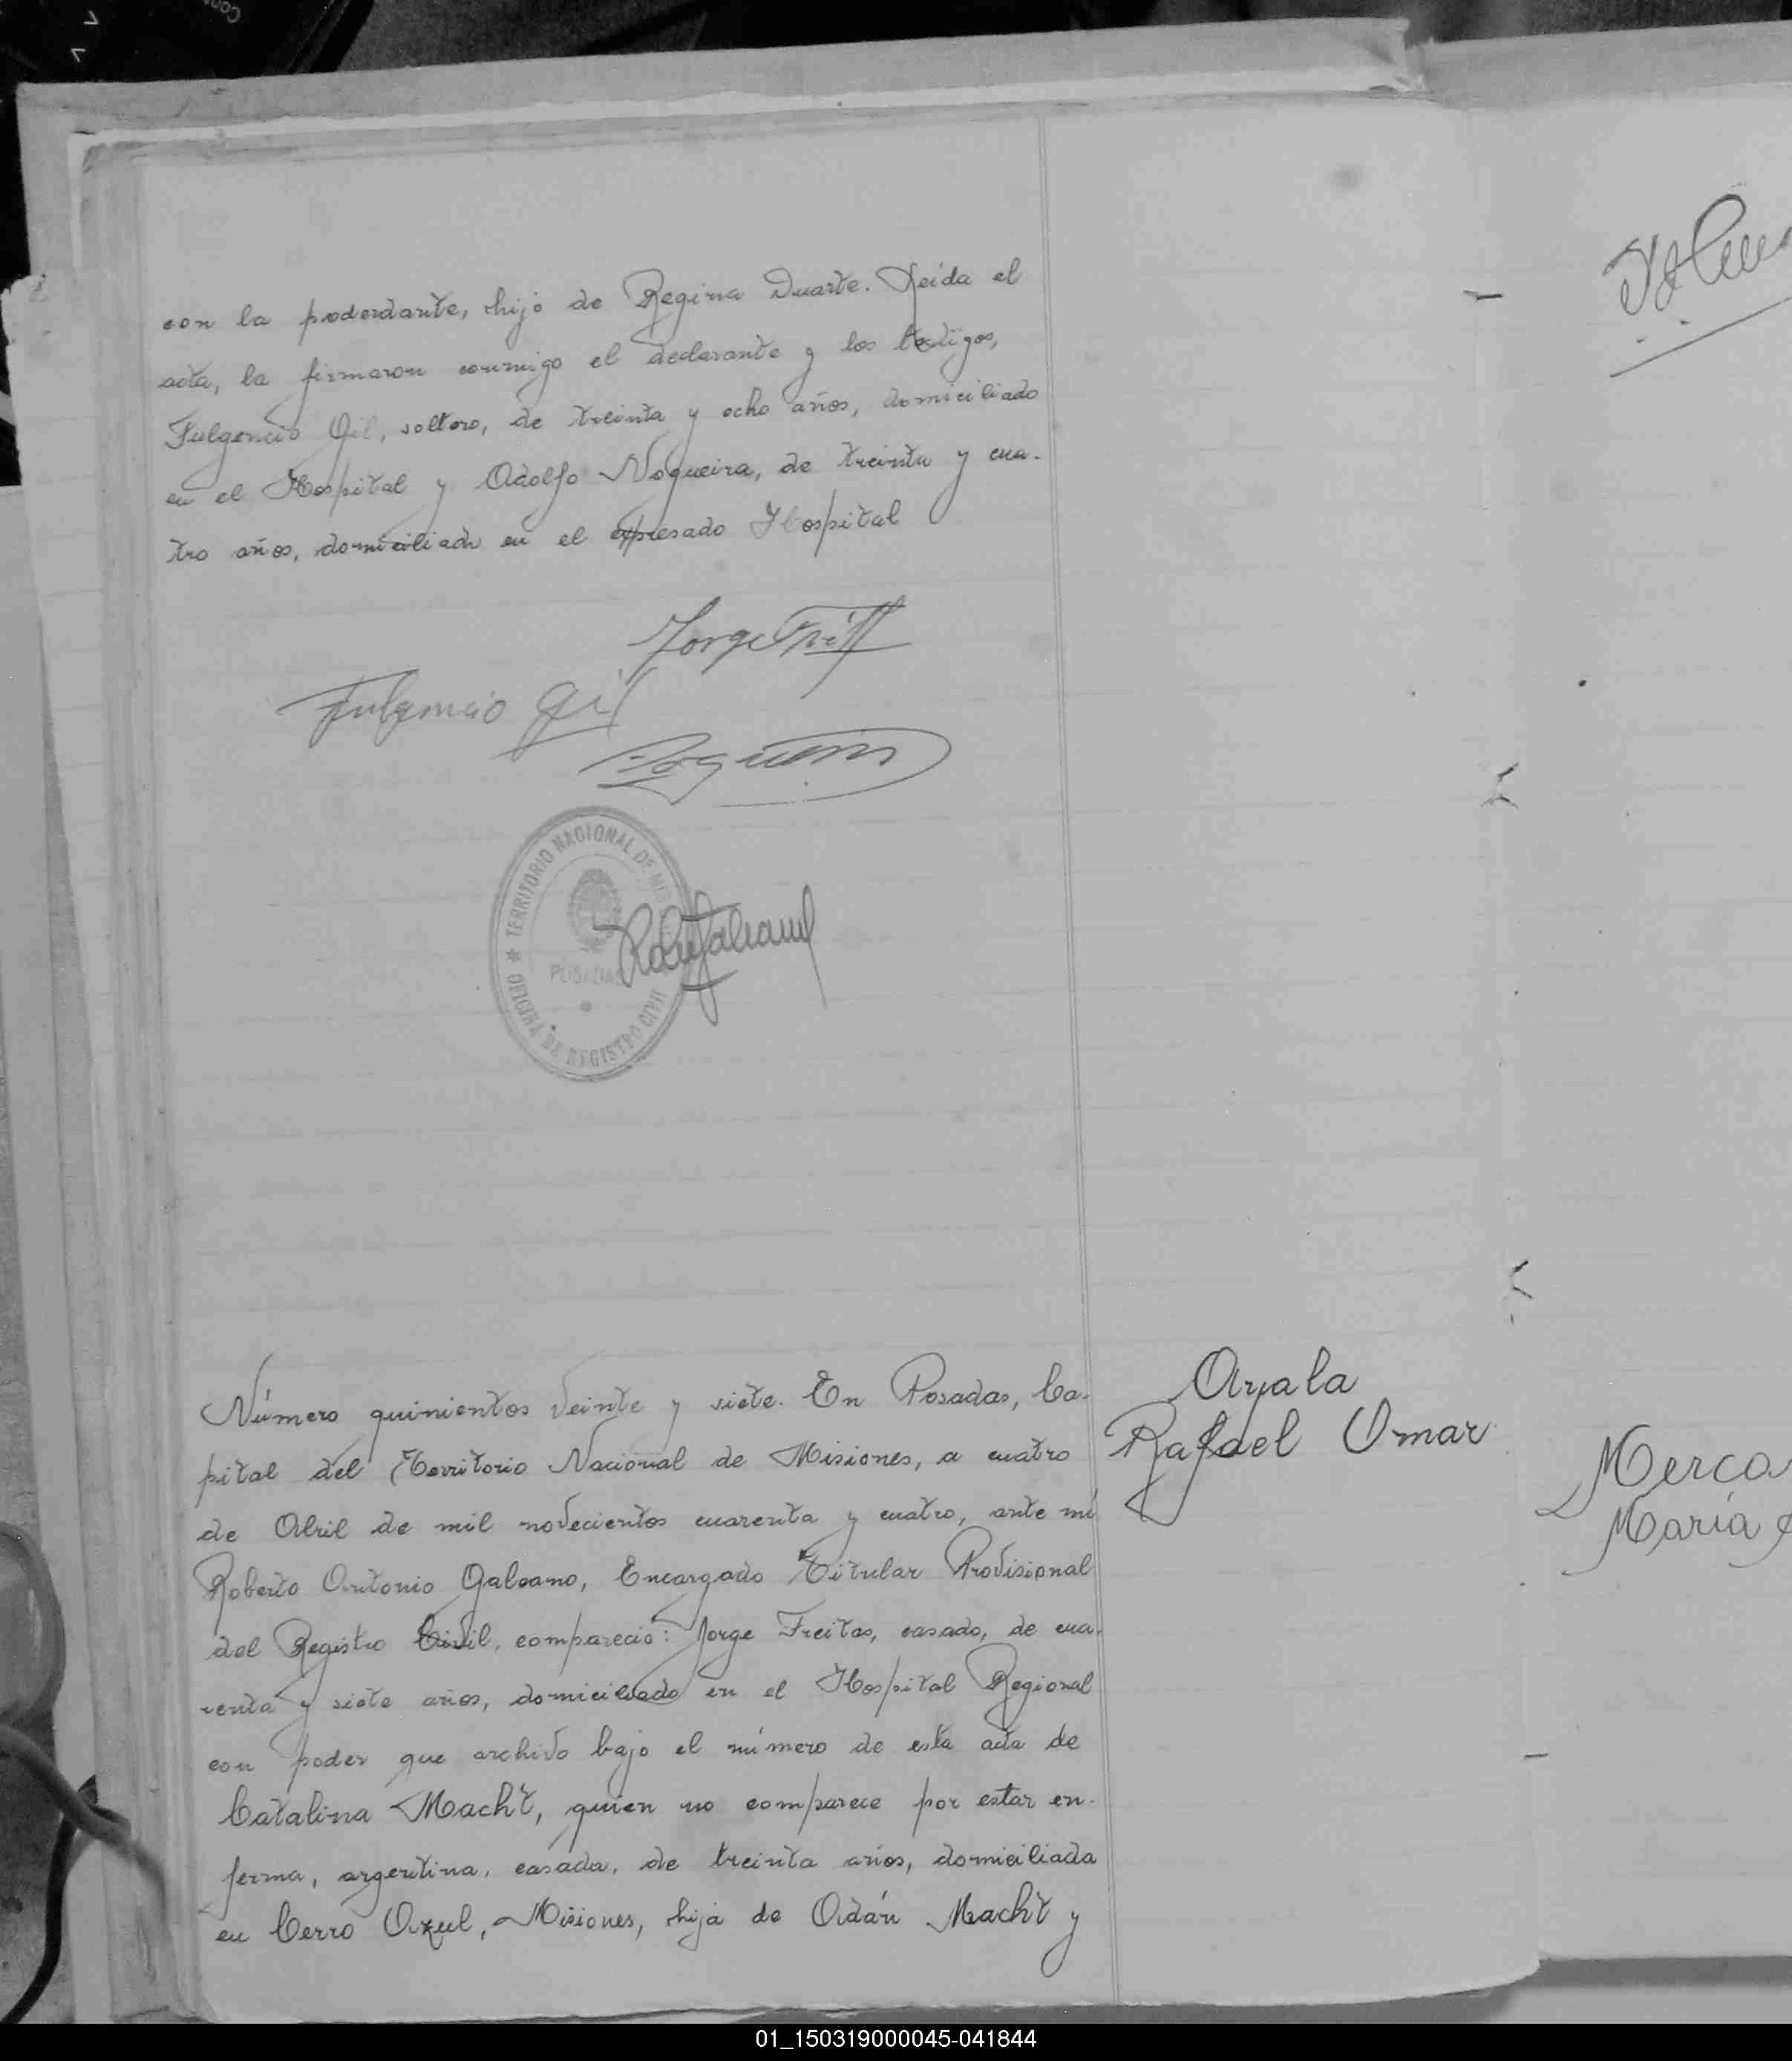 con la poderdante, hijo de Regina Duarte. Leida el
acta, la firmaron conmigo el declarante y los testigos,
Fulgencio Gil, soltero, de treinta y ocho años, domiciliado
en el Hospital y Adolfo Nogueira, de treinta y cua-
tro años, domiciliado en el expresado Hospital
Jorge
Fulgencio Gil
TERRITORIO NACIONAL DE MIS
POSADAS
OFICINA DE REGISTRO CIVIL
Número quinientos veinte y siete. En Posadas, Ca-
pital del Territorio Nacional de Misiones, a cuatro
de Abril de mil novecientos cuarenta y cuatro, ante mí
Roberto Antonio Galeano, Encargado Titular Provisional
del Registro Civil, compareció: Jorge Freitas, casado, de cua-
renta y siete años, domiciliado en el Hospital Regional
con poder que archivo bajo el número de esta acta de
Catalina Macht, quien no comparece por estar en-
ferma, argentina, casada, de treinta años, domiciliada
en Cerro Azul, Misiones, hija de Adán Macht y
Ayala
Rafael Omar
Merca
María
01_150319000045-041844